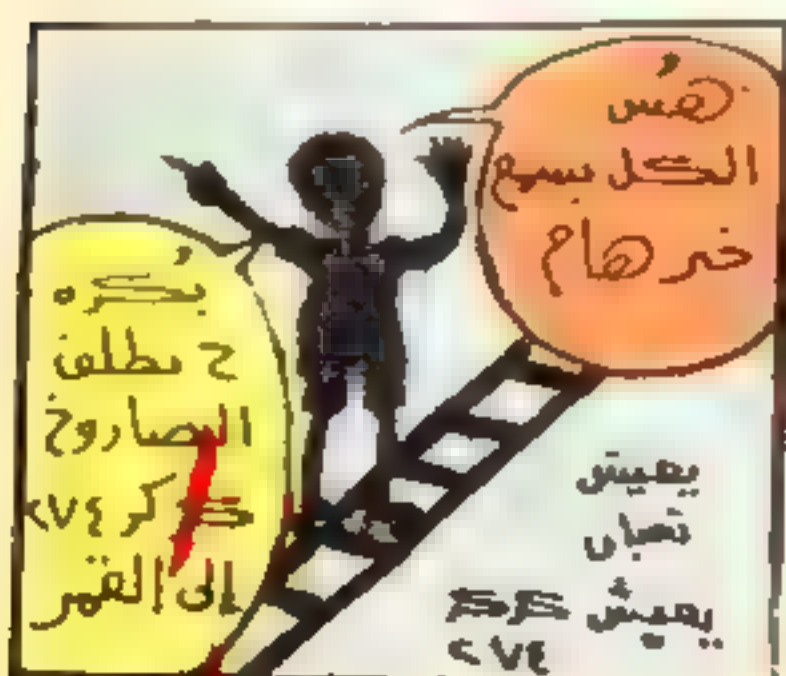 هُس
الكل يسمع
خبر هام
بُكره
ح نطلق
الصاروخ
كركر ٢٧٤
إلى القمر
يعيش
تعبان
يعيش
٢٧٤